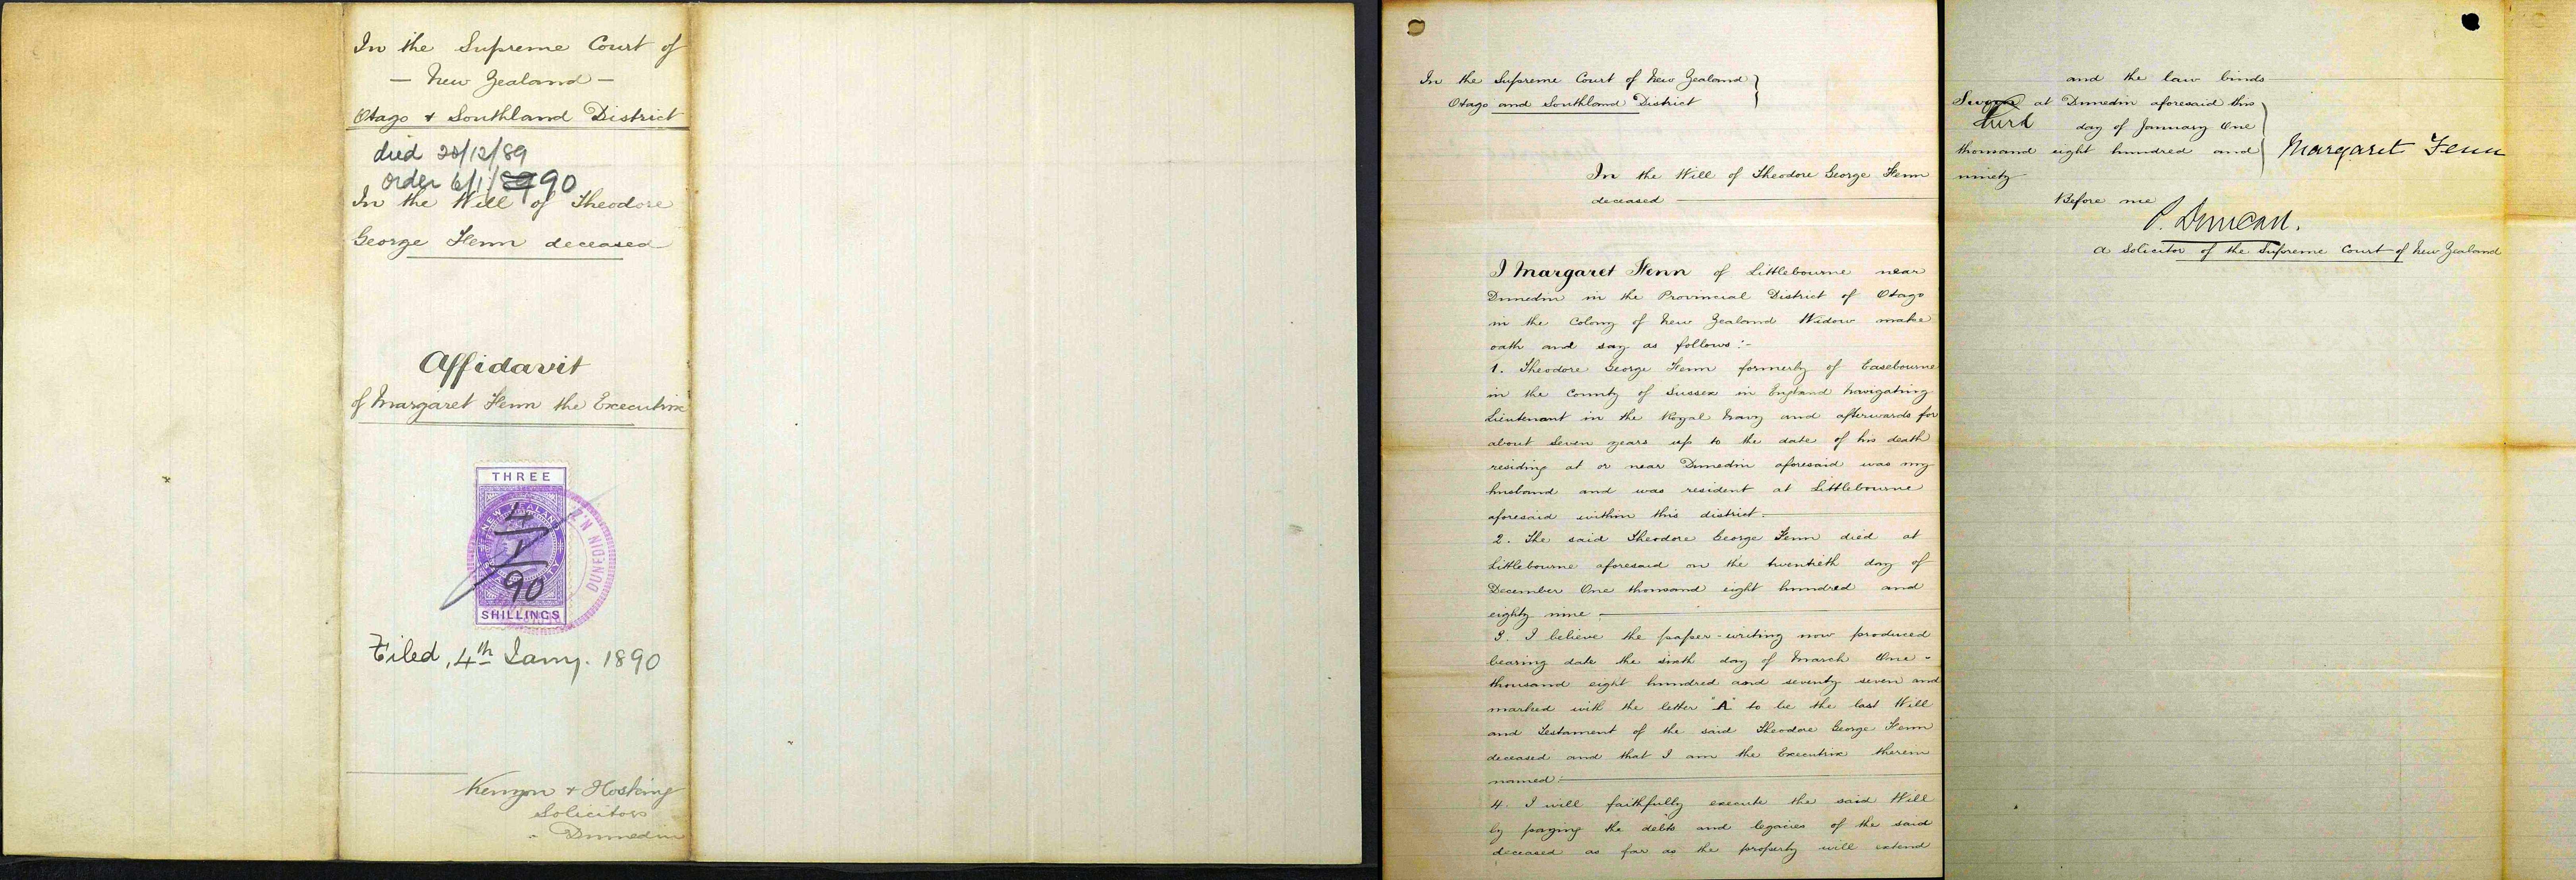 In the Supreme Court of
— New Zealand —
Otago & Southland District
died 20/12/89
order 6/1/89 90
In the Will of Theodore
George Fenn deceased
Affidavit
of Margaret Fenn the Executrix
THREE
NEW ZEALAND
4/1/90
SHILLINGS
DUNEDIN N.Z.
Filed, 4th Jany. 1890
Kenyon & Hosking
Solicitors
Dunedin
In the Supreme Court of New Zealand
Otago and Southland District
In the Will of Theodore George Fenn
deceased
I Margaret Fenn of Littlebourne near
Dunedin in the Provincial District of Otago
in the Colony of New Zealand Widow make
oath and say as follows:-
1. Theodore George Fenn formerly of Easebourne
in the County of Sussex in England Navigating
Lieutenant in the Royal Navy and afterwards for
about Seven years up to the date of his death
residing at or near Dunedin aforesaid was my
husband and was resident at Littlebourne
aforesaid within this district.
2. The said Theodore George Fenn died at
Littlebourne aforesaid on the twentieth day of
December One thousand eight hundred and
eighty nine
3. I believe the paper-writing now produced
bearing date the sixth day of March One-
thousand eight hundred and seventy seven and
marked with the letter "A" to be the last Will
and Testament of the said Theodore George Fenn
deceased and that I am the Executrix therein
named.
4. I will faithfully execute the said Will
by paying the debts and legacies of the said
deceased as far as the property will extend
and the law binds
Sworn at Dunedin aforesaid this
third day of January One
thousand eight hundred and
ninety
Margaret Fenn
Before me
P. Duncan.
a Solicitor of the Supreme Court of New Zealand